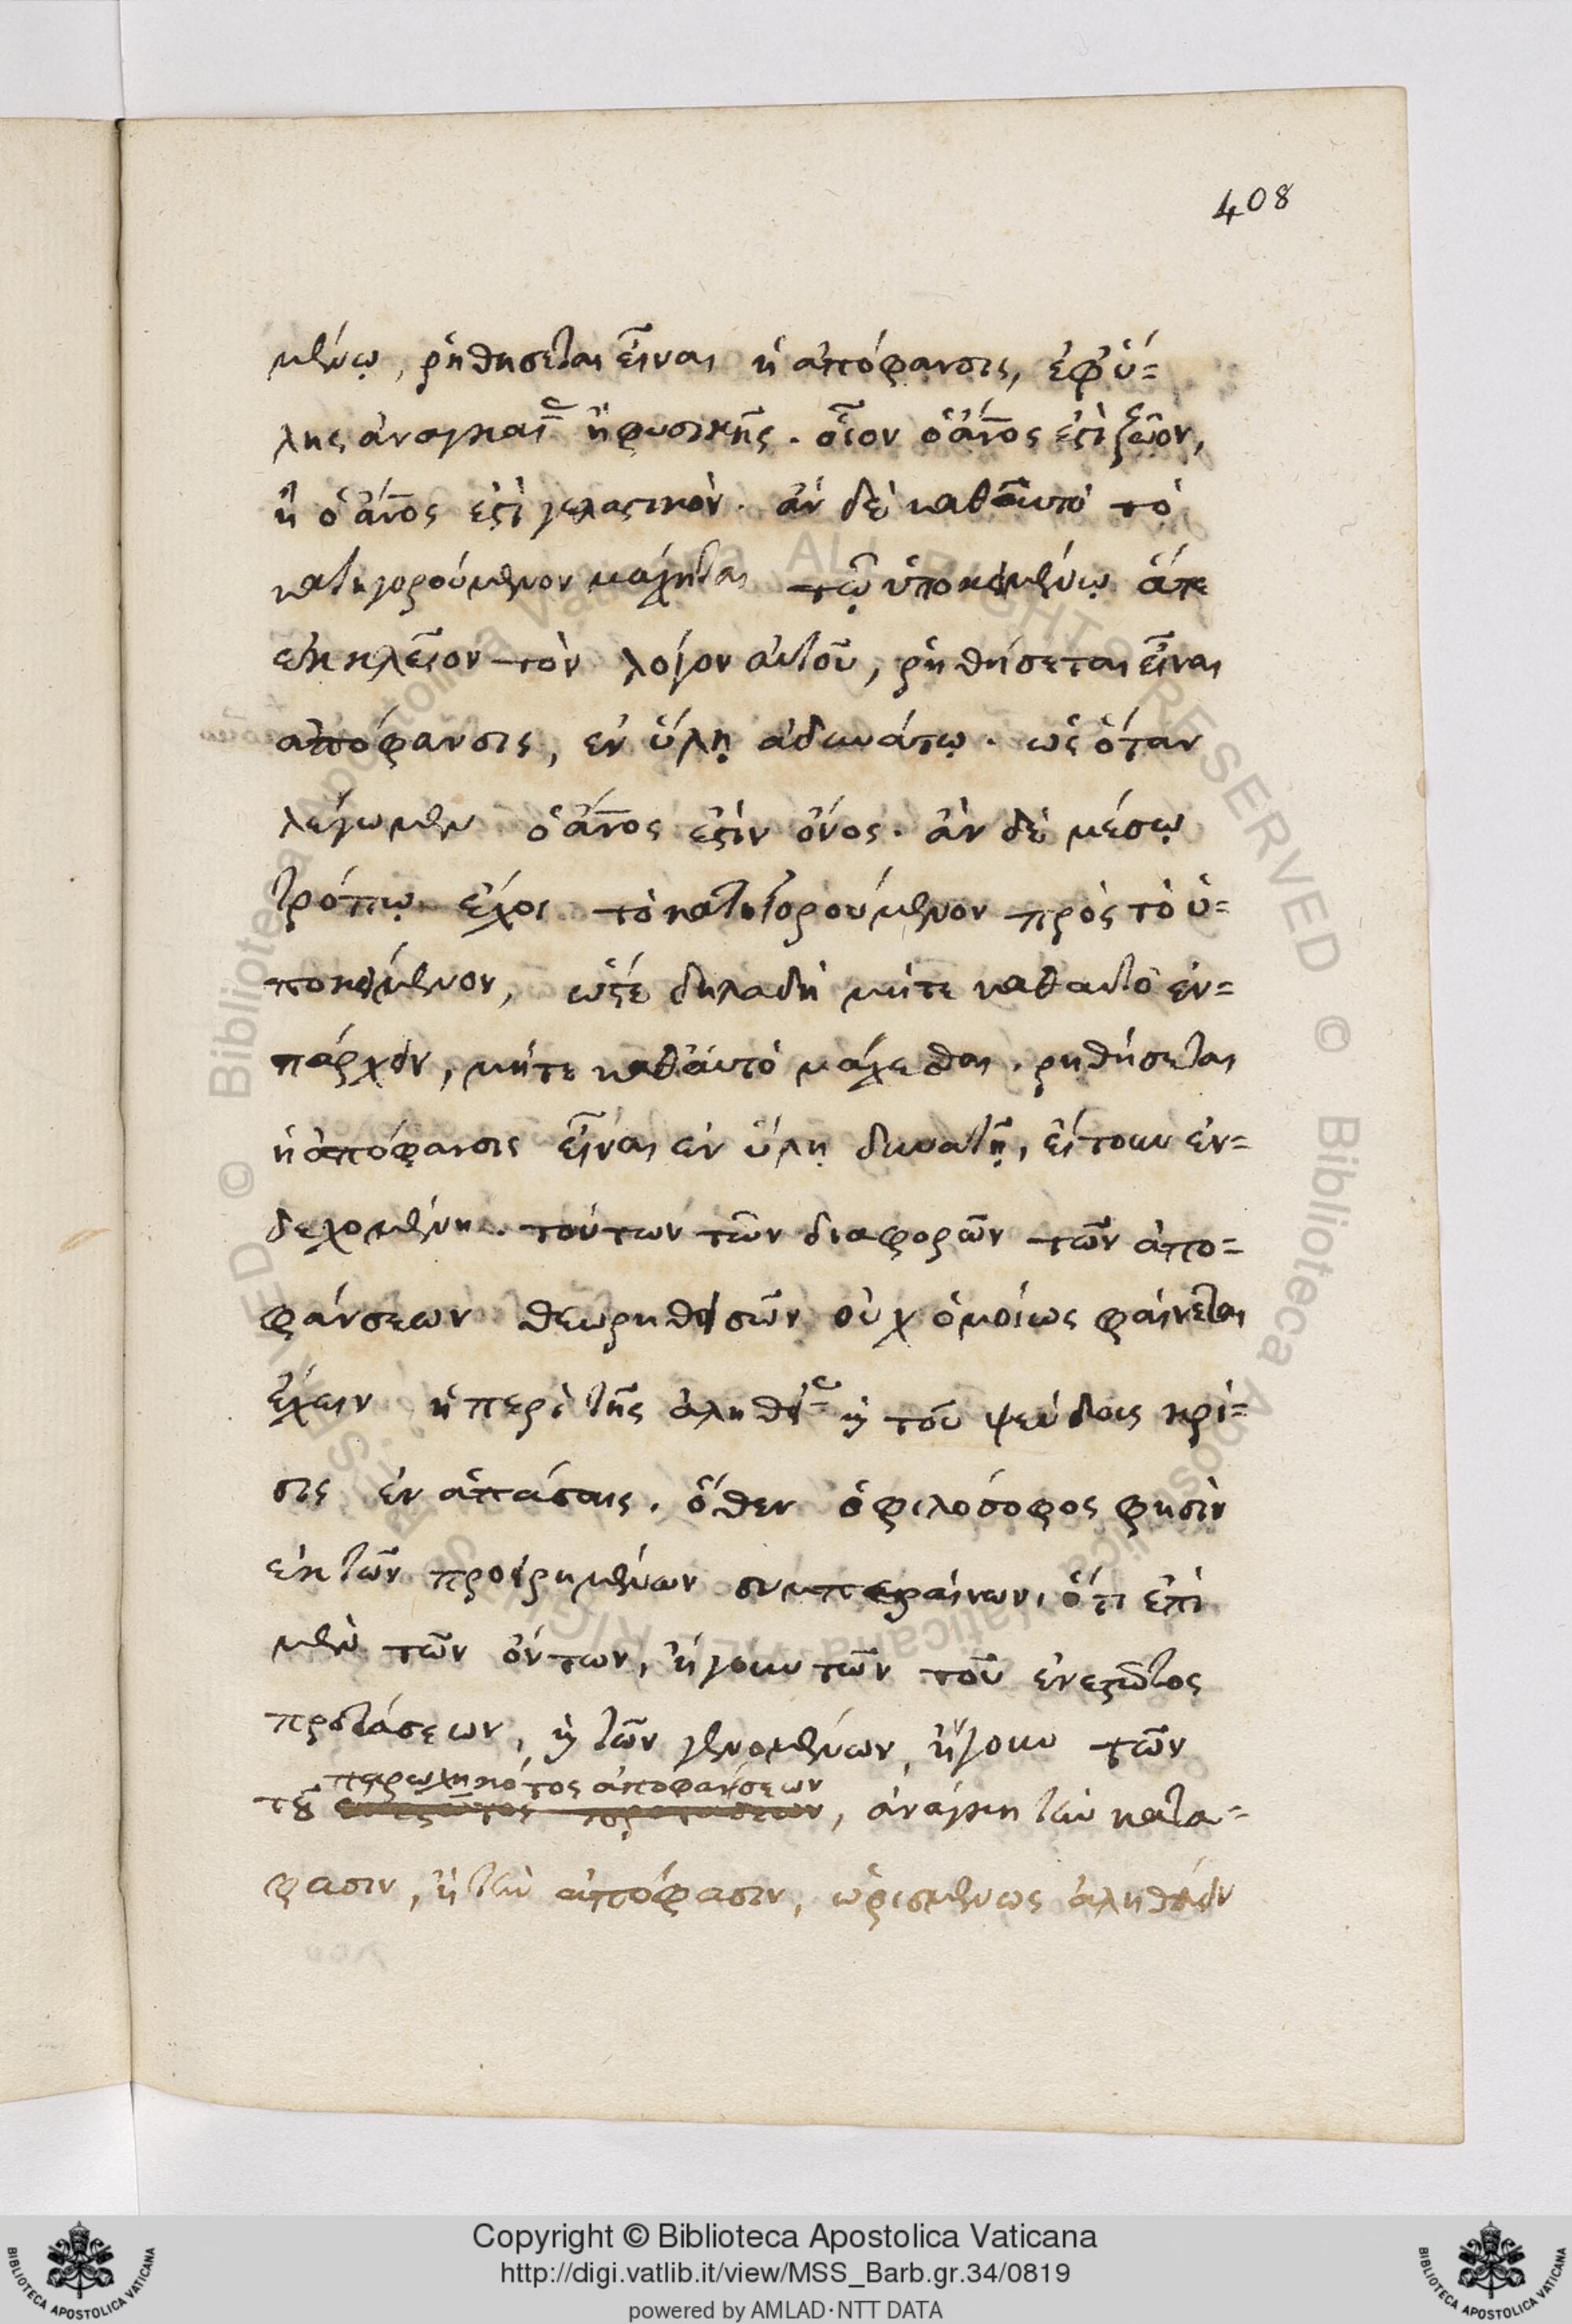 408
μένω, ῥηθησεται εἶναι ἡ ἀπόφανσις, ἐφ' ὕ=
λης ἀναγκαί(ας) ἢ φυσικῆς. οἷον ὁ ἄνος ἐστὶ ζῶον,
ἢ ὁ ἄνος ἐστὶ γελαστικόν. ἂν δὲ καθ' αὑτὸ τὸ
κατηγορούμενον μάχηται τῷ ὑποκειμένῳ ἅτε
ἐκκλεῖον τὸν λόγον αὐτοῦ, ῥηθήσεται εἶναι
ἀπόφανσις, ἐν ὕλῃ ἀδυνάτῳ. ὡς ὅταν
λέγωμεν ὁ ἄνος ἐστὶν ὄνος. ἂν δὲ μέσῳ
τρόπῳ ἔχοι τὸ κατηγορούμενον πρὸς τὸ ὑ=
ποκείμενον, ὥστε δηλαδὴ μήτε καθ αυτὸ ἐν=
πάρχειν, μήτε καθ' αὑτὸ μάχεσθαι. ῥηθήσεται
ἡ ἀπόφανσις εἶναι ἐν ὕλῃ δυνατῇ, εἴτουν ἐν=
δεχομένη. τούτων τῶν διαφορῶν τῶν ἀπο=
φάνσεων θεωρηθεισῶν οὐχ ὁμοίως φαίνεται
ἔχειν ἡ περὶ τῆς ἀληθεί(ας) καὶ τοῦ ψεύδους κρί=
σις ἐν ἁπάσαις. ὅθεν ὁ φιλόσοφος φησὶν
ἐκ τῶν προειρημένων συμπεραίνων, ὅτι ἐπὶ
μὲν τῶν ὄντων, ἤγουν τῶν τοῦ ἐνεστῶτος
προτάσεων, καὶ τῶν γενομένων, ἤγουν τῶν
παρωχηκότος ἀποφανσεων
τοῦ ἐνεστῶτος προτάσεων, ἀνάγκη τὴν κατα=
φασιν, ἢ τὴν ἀπόφασιν, ὡρισμένως ἀληθῆ
Copyright © Biblioteca Apostolica Vaticana
http://digi.vatlib.it/view/MSS_Barb.gr.34/0819
powered by AMLAD·NTT DATA